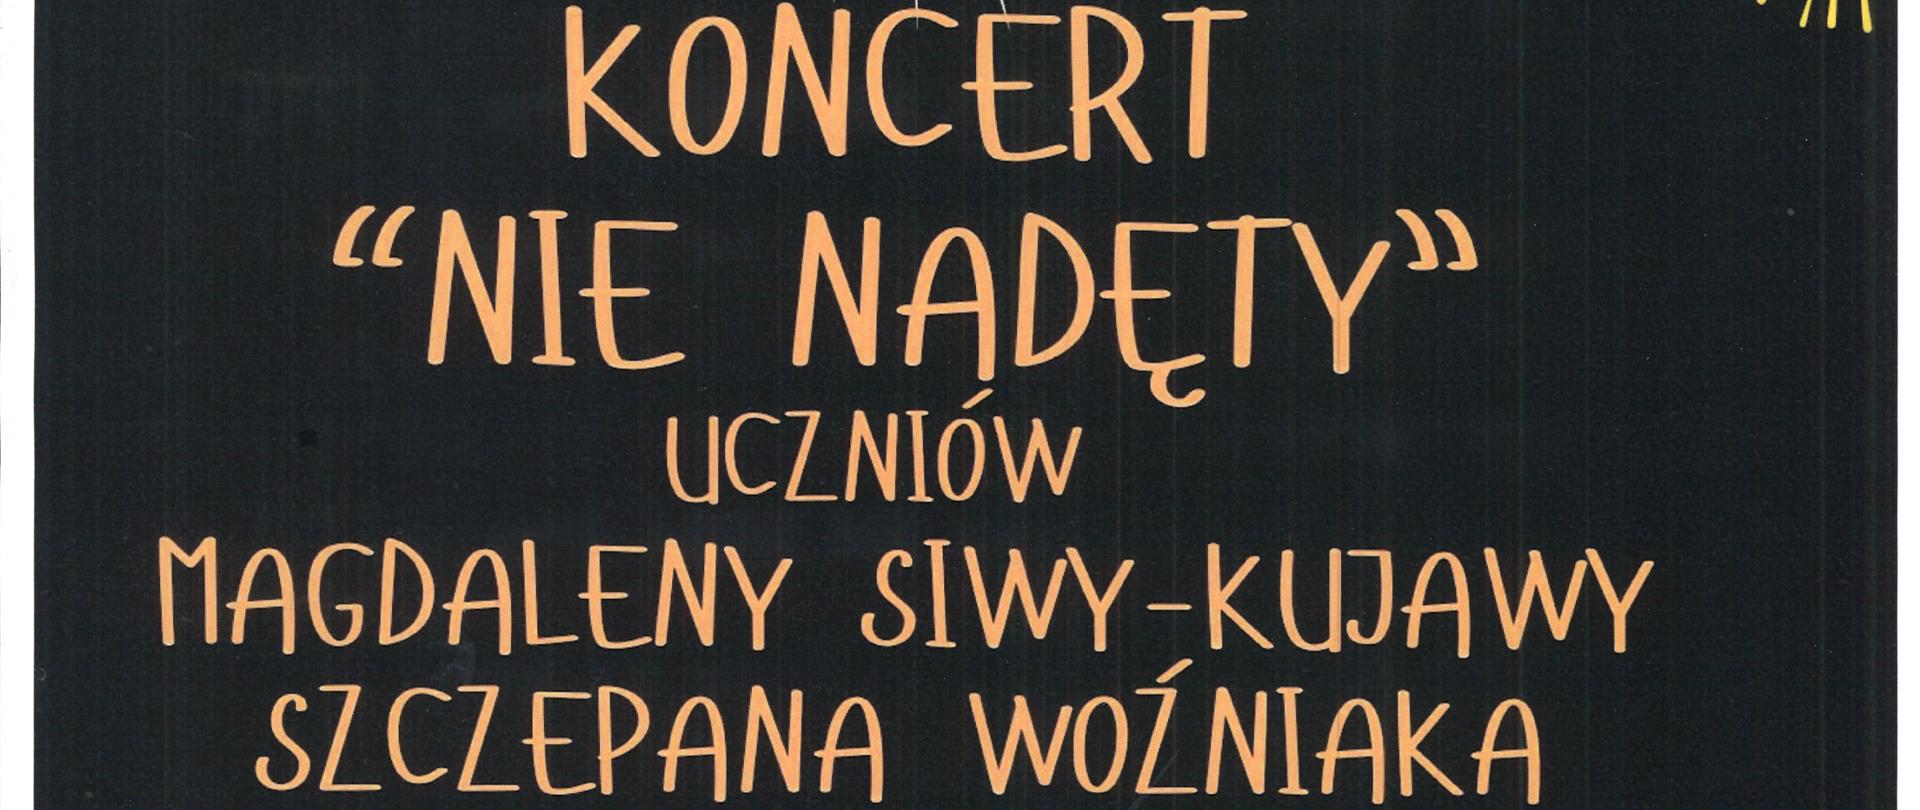 KONCERT
“NIE NADĘTY”
UCZNIÓW
MAGDALENY SIWY-KUJAWY
SZCZEPANA WOŹNIAKA